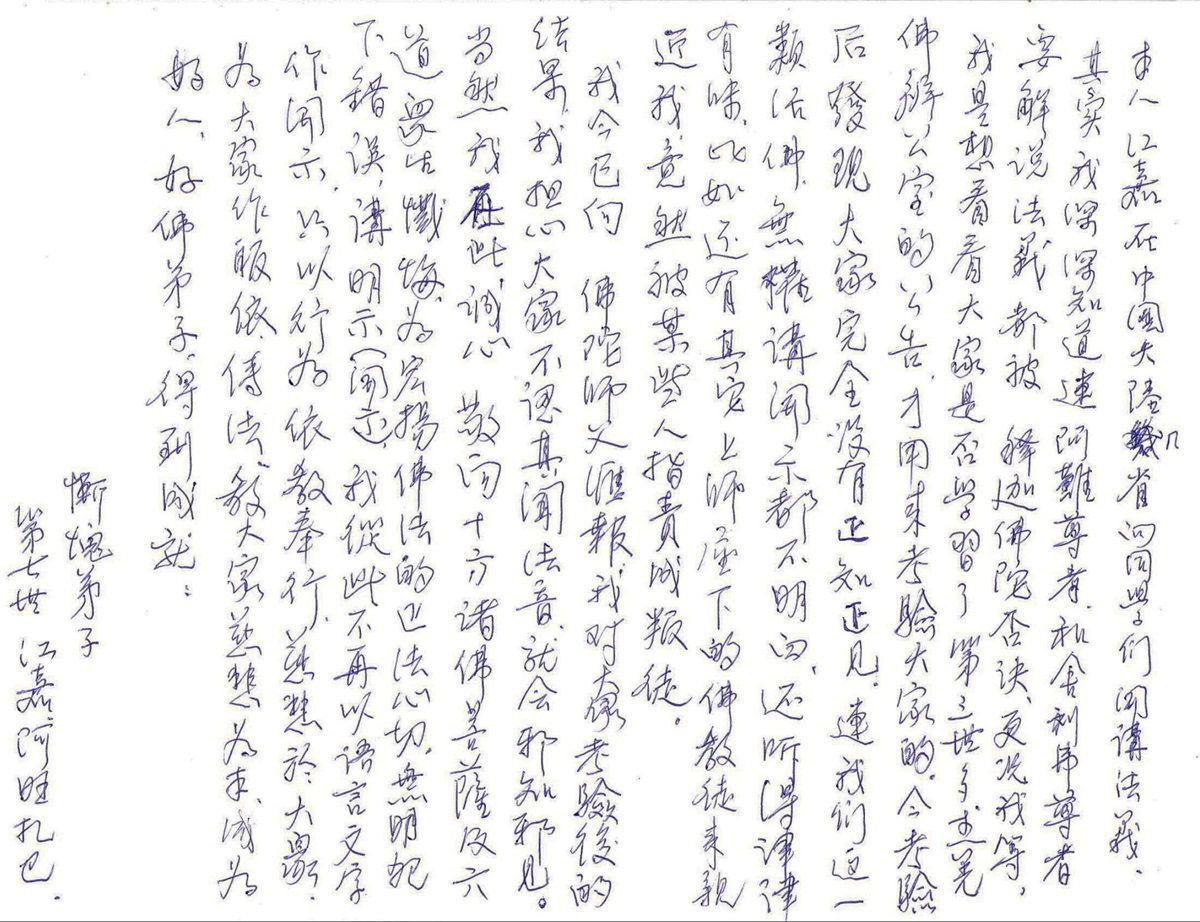 本人江嘉在中國大陸幾省向同學们開講法義.
其实我深深知道連 阿難尊者、和舍利弗尊者
要解说法義都被 释迦佛陀否决,更况我等,
我是想看看大家是否學習了第三世多杰羌
佛辦公室的公告,才用来考驗大家的。今考驗
后發現大家完全没有正知正見。連我们這一
類活佛,無權講開示都不明白,还听得津津
有味,比如还有真实上师座下的佛教徒来親
近我竟然被某些人指責成叛徒。
我今已向 佛陀师父匯報,我对大家考驗後的
结果,我担心大家不認真聞法音、就会邪知邪見。
当然我在此诚心 敬向十方诸佛菩薩及六
道眾生懺悔,为宏揚佛法的正法心切,無明犯
下錯误,講明示(開示),我從此不再以语言文字
作開示,只以行为依教奉行,慈悲於大眾.
為大家作皈依、傳法,教大家慈悲為本、成為
好人、好佛弟子,得到成就:
慚愧弟子
第七世 江嘉.阿旺扎巴.